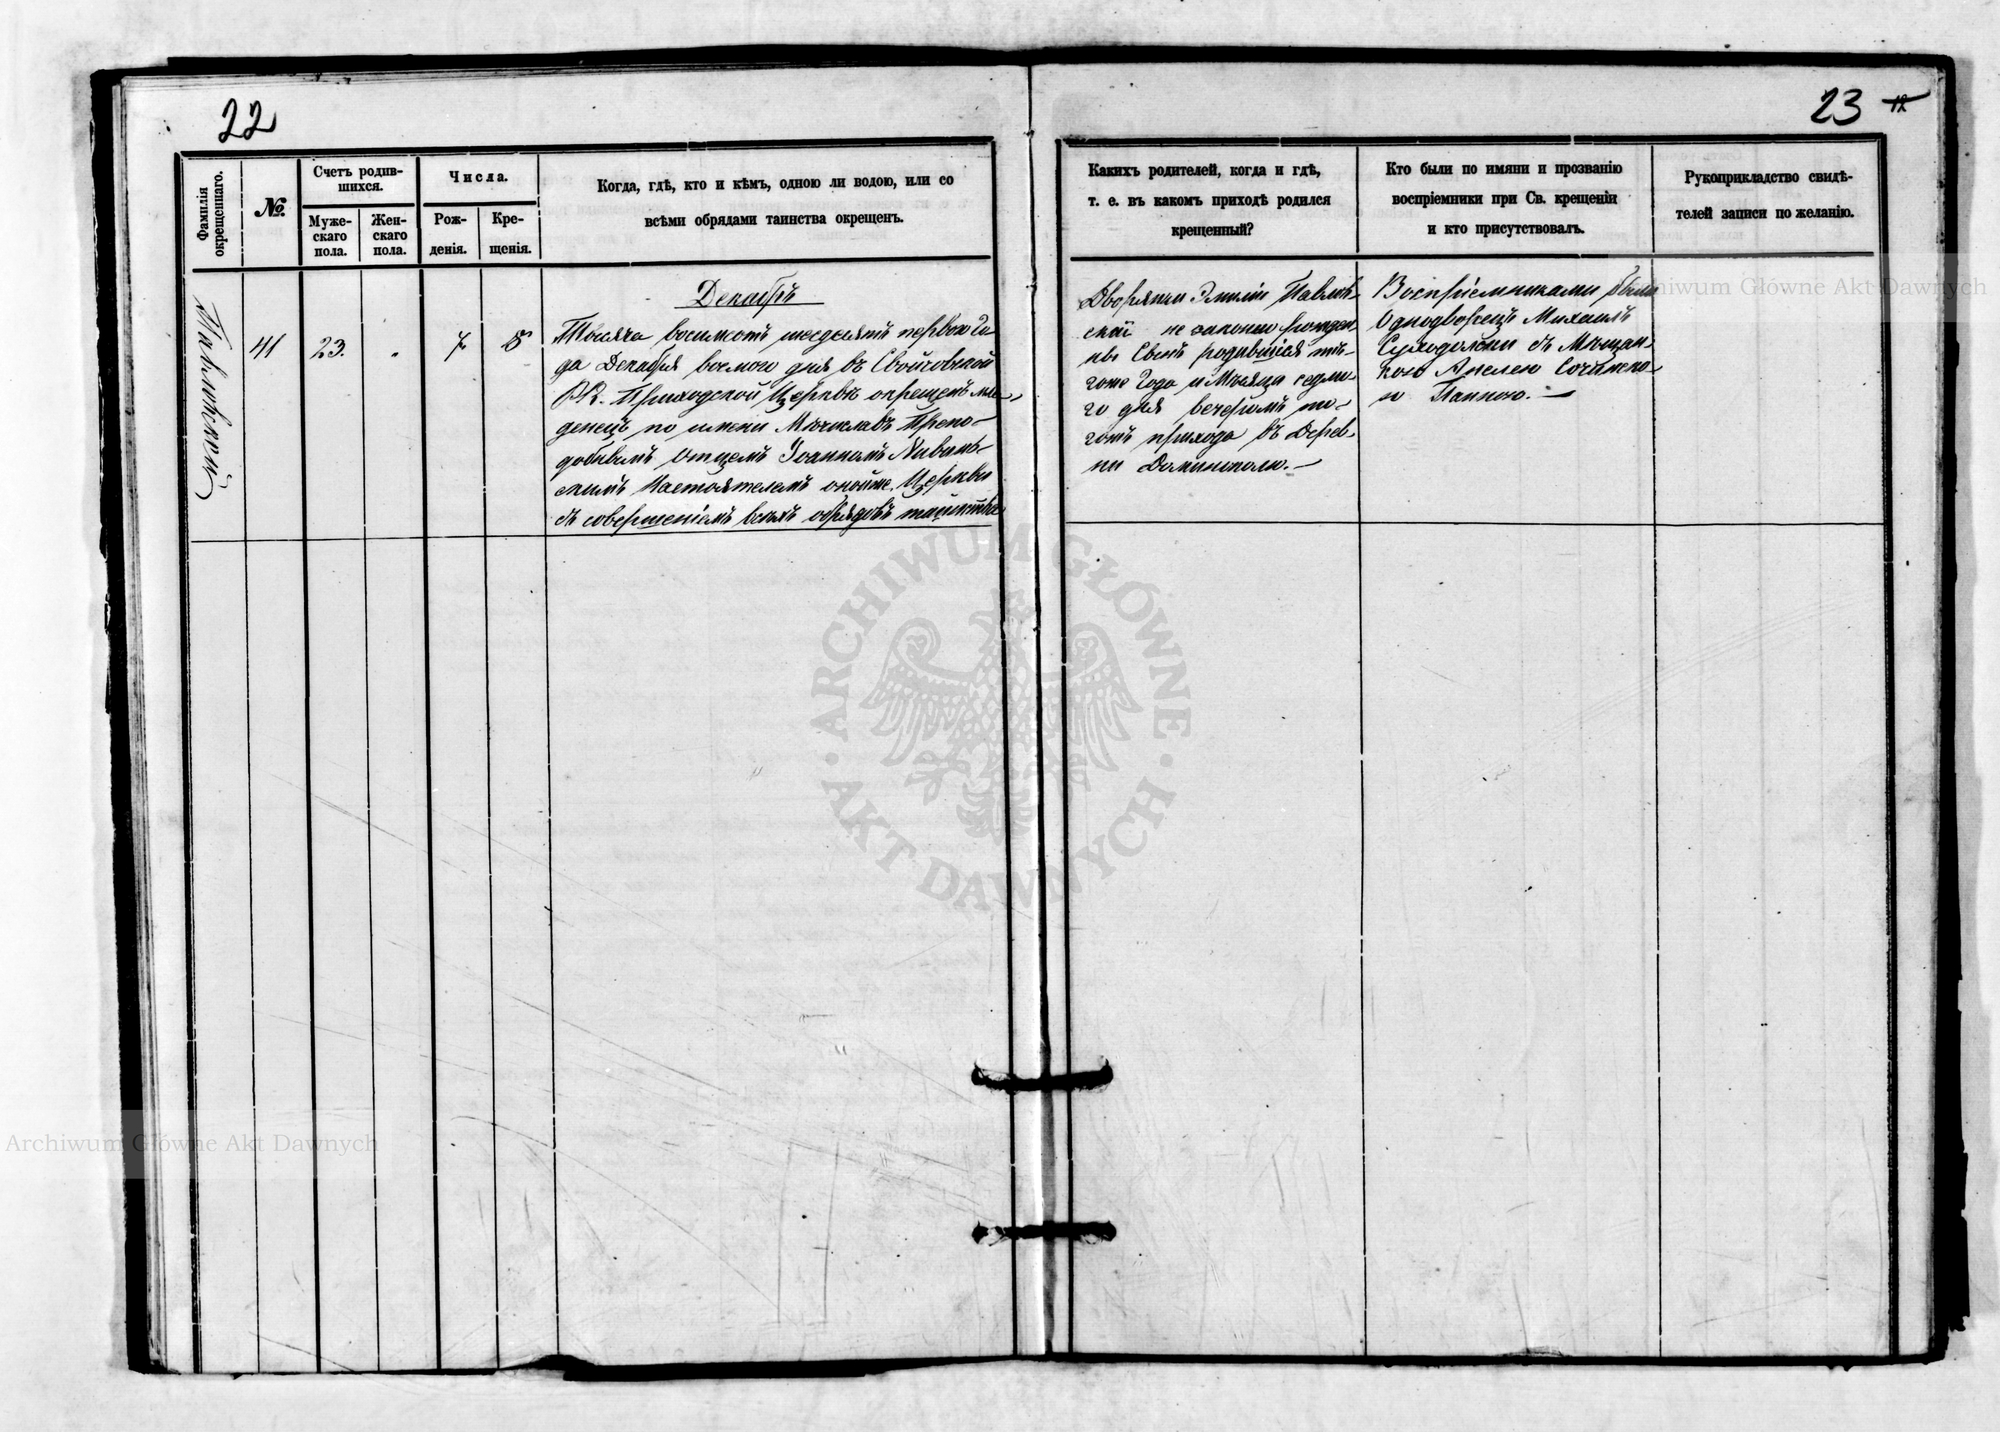 22
Фамилія
окрещеннаго.
№.
Счетъ родив-
шихся.
Муже-
скаго
пола.
Жен-
скаго
пола.
Числа.
Рож-
денія.
Кре-
щенія.
Когда, гдѣ, кто и кѣмъ, одною ли водою, или со
всѣми обрядами таинства окрещенъ.
Павловскій
41
23.
7
8
Декабрь
Тысяча восимсотъ шесдесятъ перваго Го-
да Декабря восмого дня въ Свойчовской
РК. Приходской Церквѣ окрещенъ мла-
денецъ по имени Мечиславъ Препо-
добнымъ Отцемъ Іоанномъ
скимъ Настоятелемъ онойже Церкви
съ совершеніемъ всѣхъ обрядовъ таинства
23 12
Какихъ родителей, когда и гдѣ,
т. е. въ какомъ приходѣ родился
крещенный?
Кто были по имяни и прозванію
воспріемники при Св. крещеніи
и кто присутствовалъ.
Рукоприкладство свидѣ-
телей записи по желанію.
Дворянки Эмиліи Павлов-
ской не законно рожден-
ны Сынъ родившійся то-
гоже Года и Мѣсяца седмо-
го дня вечеромъ то-
гожъ прихода въ Дерев-
ни Доминополю.
Воспріемниками были
Однодворецъ Михаилъ
Суходольскій съ Мѣщан-
кою
Панною.
Archiwum Główne Akt Dawnych
ARCHIWUM GŁÓWNE
AKT DAWNYCH
Archiwum Główne Akt Dawnych